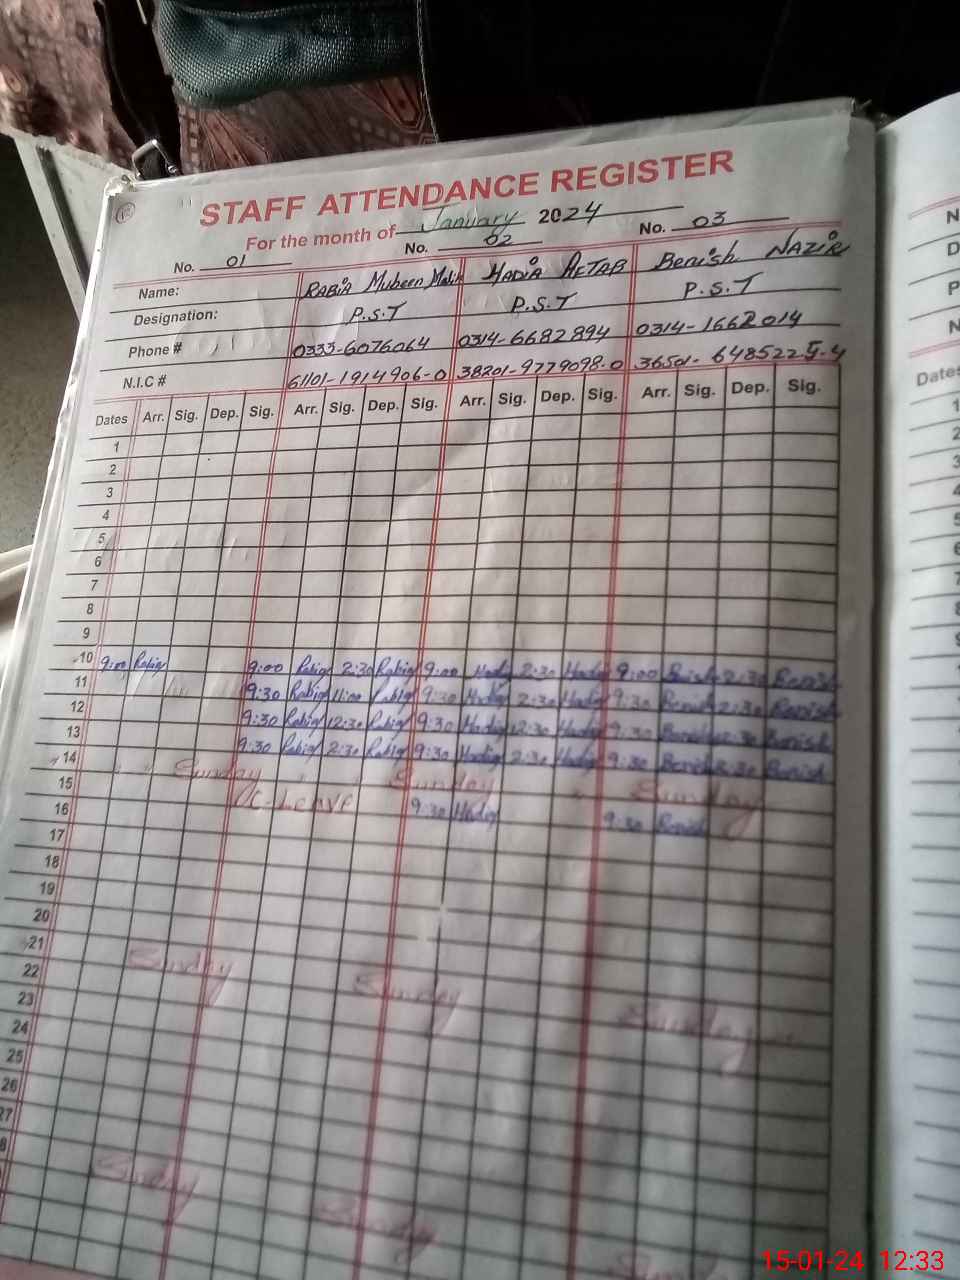 STAFF ATTENDANCE REGISTER
For the month of January 2024
No. 01 No. 02 No. 03
Name: RABIA Mubeen Malik HADIA AFTAB Benish NAZIR
Designation: P.S.T P.S.T P.S.T
Phone # 0333-6076064 0314-6682894 0314-1662014
N.I.C # 61101-1914906-0 38201-9779098-0 36501-6485225-4
Dates Arr. Sig. Dep. Sig. Arr. Sig. Dep. Sig. Arr. Sig. Dep. Sig. Arr. Sig. Dep. Sig.
1
2
3
4
5
6
7
8
9
10 9:00 Rabia 9:00 Rabia 2:30 Rabia 9:00 Hadia 2:30 Hadia 9:00 Benish 2:30 Benish
11 9:30 Rabia 11:00 Rabia 9:30 Hadia 2:30 Hadia 9:30 Benish 2:30 Benish
12 9:30 Rabia 12:30 Rabia 9:30 Hadia 12:30 Hadia 9:30 Benish 12:30 Benish
13 9:30 Rabia 2:30 Rabia 9:30 Hadia 2:30 Hadia 9:30 Benish 2:30 Benish
14 Sunday Sunday Sunday
15 C-Leave 9:30 Hadia 9:30 Benish
16
17
18
19
20
21 Sunday Sunday Sunday
22
23
24
25
26
27
Sunday Sunday Sunday
N
D
P
N
Dates
1
2
3
4
5
6
7
8
9
15-01-24 12:33